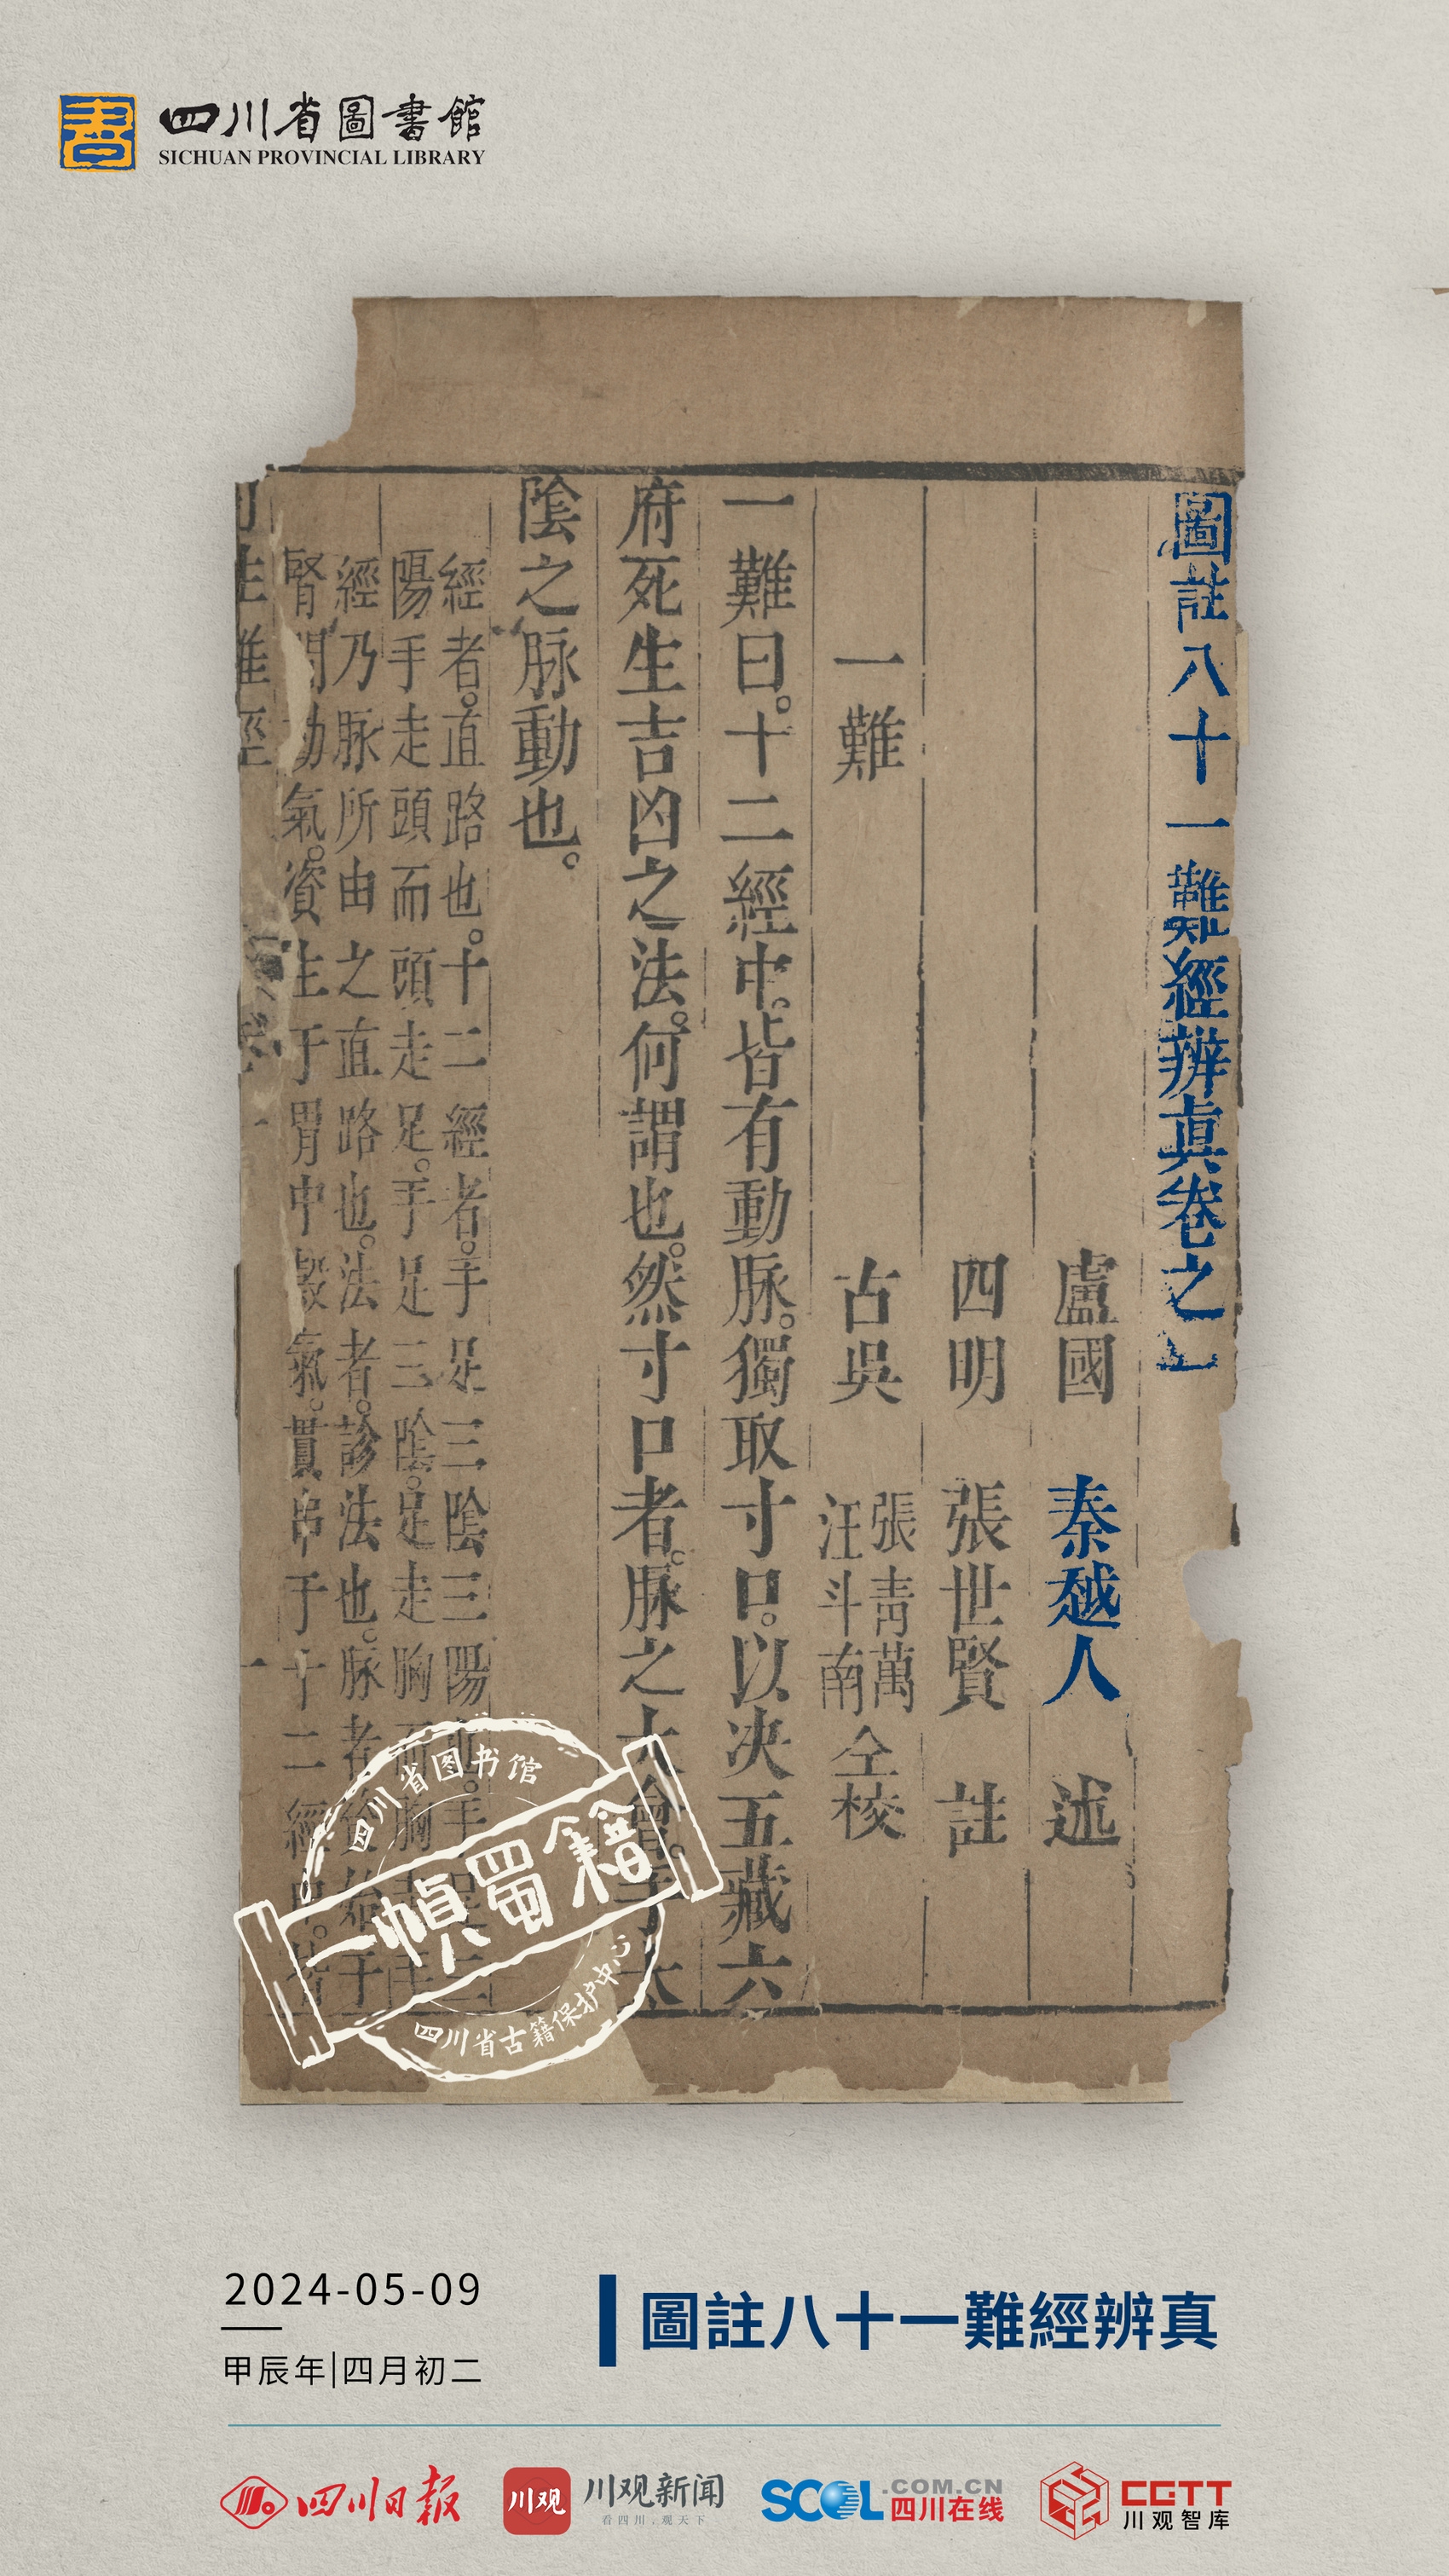 四川省圖書館
SICHUAN PROVINCIAL LIBRARY
圖註八十一難經辨真卷之一
盧國 秦越人 述
四明 張世賢 註
一難 古吳 張青萬 汪斗南 仝校
一難曰。十二經中。皆有動脉。獨取寸口。以决五藏六
府死生吉凶之法。何謂也。然寸口者。脉之大會。手太
陰之脉動也。
經者。直路也。十二經者。手足三陰三陽也。手足三
陽手走頭而頭走足。手足三陰。足走胸而胸走手
經乃脉所由之直路也。法者。診法也。脉者資始于
腎間動氣。資生于胃中穀氣。貫串于十二經中。
四川省图书馆
一幀蜀籍
四川省古籍保护中心
2024-05-09
甲辰年|四月初二
圖註八十一難經辨真
四川日報
川观
川观新闻
看四川,观天下
SCOL.COM.CN
四川在线
CGTT
川观智库